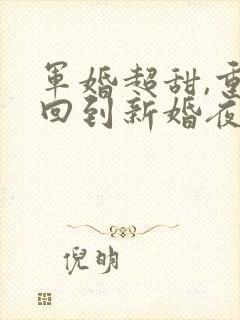 军婚超甜,重
回到新婚夜
倪明